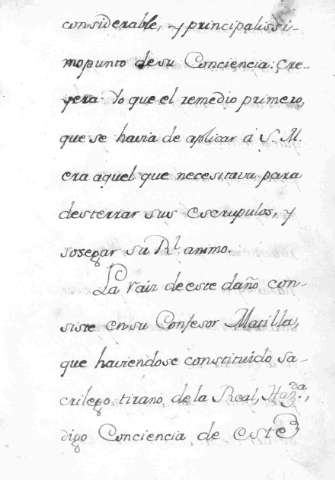 considerable, y principalissi-
mo punto de su Conciencia: Cre-
yera Yo que el remedio primero,
que se havia de aplicar á S. M.
era aquel que necesitava para
desterrar sus escrupulos, y
sosegar su Rl. animo.
La raiz de este daño con-
siste en su Confesor Matilla,
que haviendose constituido sa-
crilego tirano de la Real, Haz.da,
digo Conciencia de este